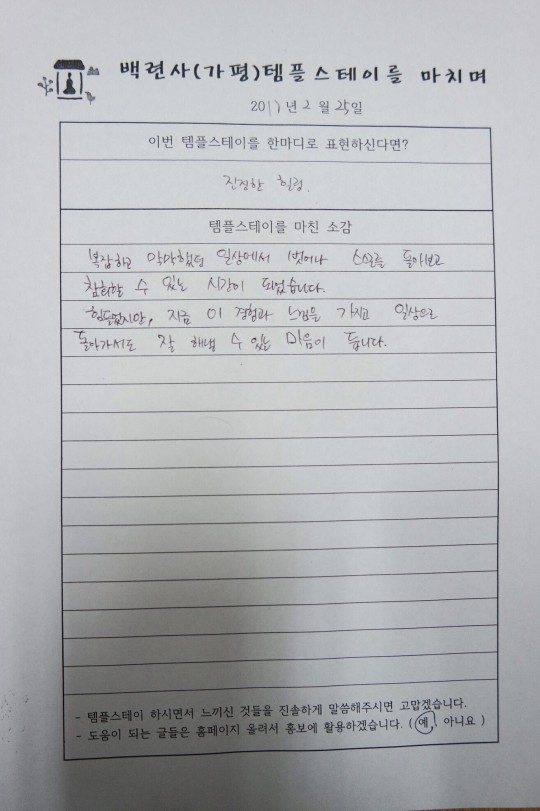 백련사(가평)템플스테이를 마치며
2017년 2월 25일
이번 템플스테이를 한마디로 표현하신다면?
진정한 힐링.
템플스테이를 마친 소감
복잡하고 막막했던 일상에서 벗어나 스스로를 돌아보고
참회할 수 있는 시간이 되었습니다.
힘들었지만, 지금 이 경험과 느낌을 가지고 일상으로
돌아가서도 잘 해낼 수 있는 마음이 듭니다.
- 템플스테이 하시면서 느끼신 것들을 진솔하게 말씀해주시면 고맙겠습니다.
- 도움이 되는 글들은 홈페이지 올려서 홍보에 활용하겠습니다. ( 예, 아니요 )